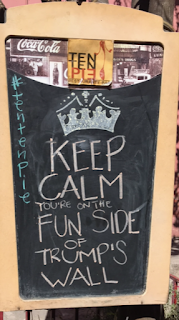 Coca-Cola
TEN
PIE
#tentenpie
KEEP
CALM
YOU'RE ON THE
FUN SIDE
OF
TRUMP'S
WALL